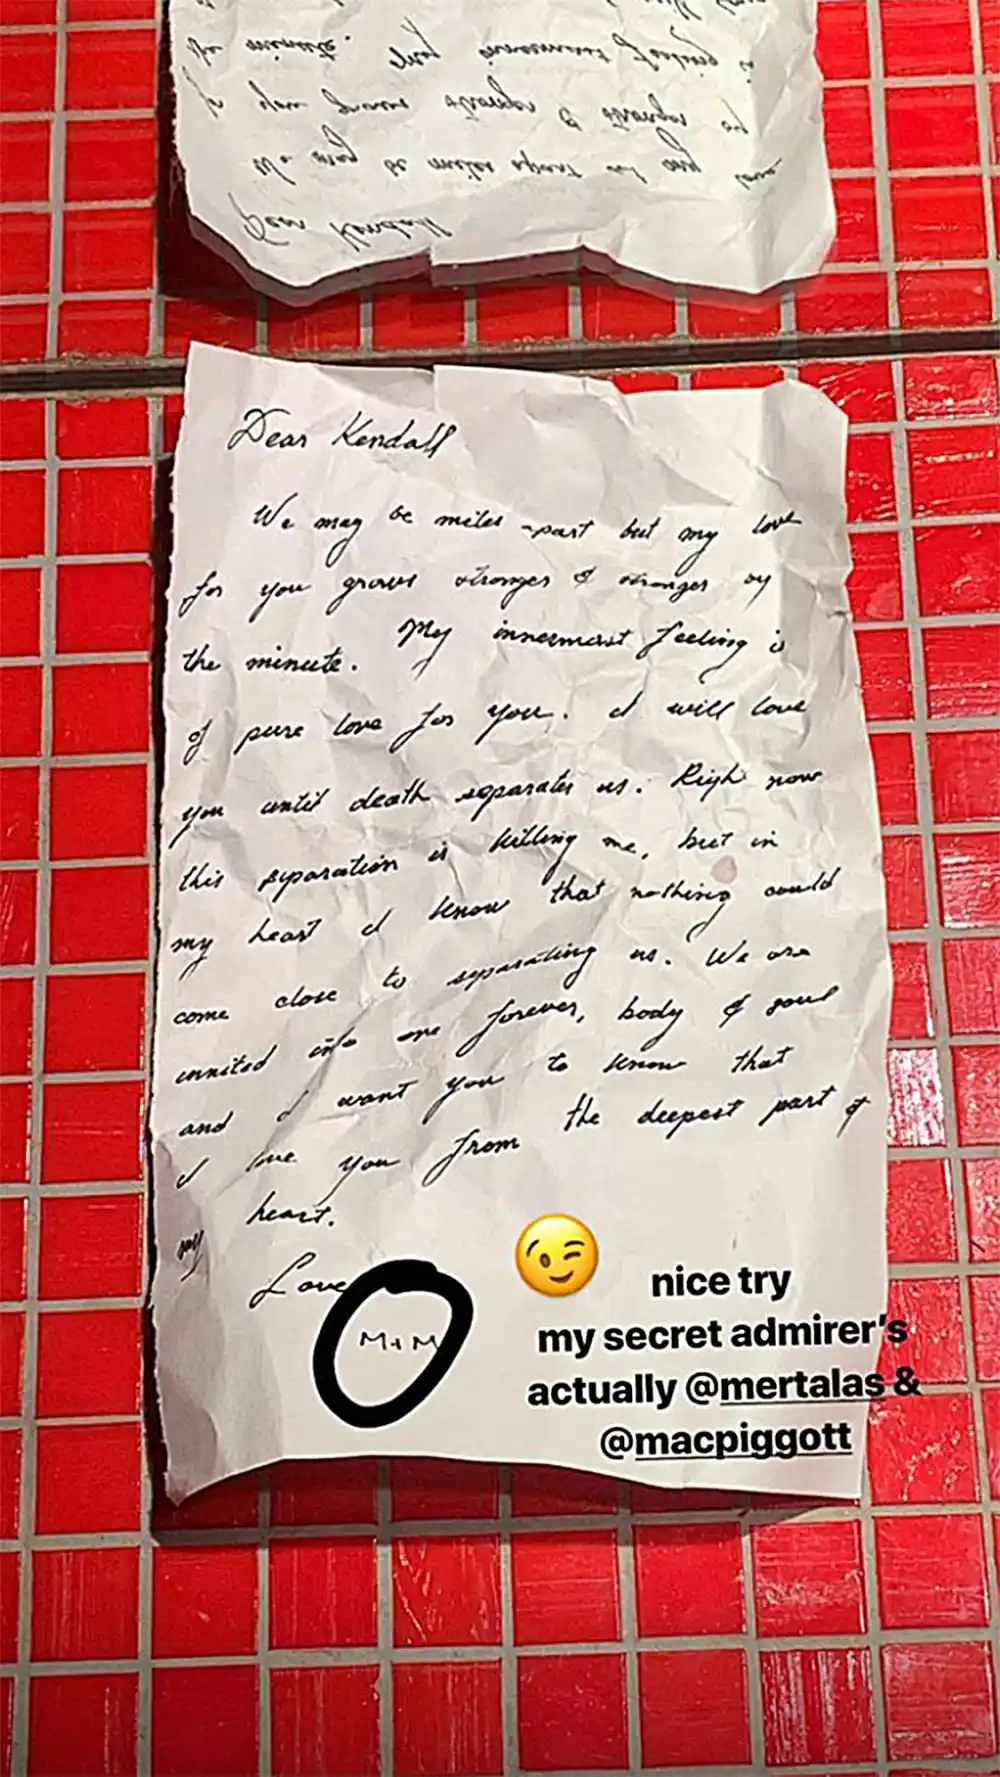 Dear Kendall
We may be miles apart but my love
for you grows stronger & stronger by
the minute. My innermost feeling is
of pure love for you. I will love
you until death separates us. Right now
this separation is killing me, but in
my heart I know that nothing could
come close to separating us. We are
united into one forever, body & soul
and I want you to know that
I love you from the deepest part of
my heart.
Love
M+M
😉 nice try
my secret admirer's
actually @mertalas &
@macpiggott